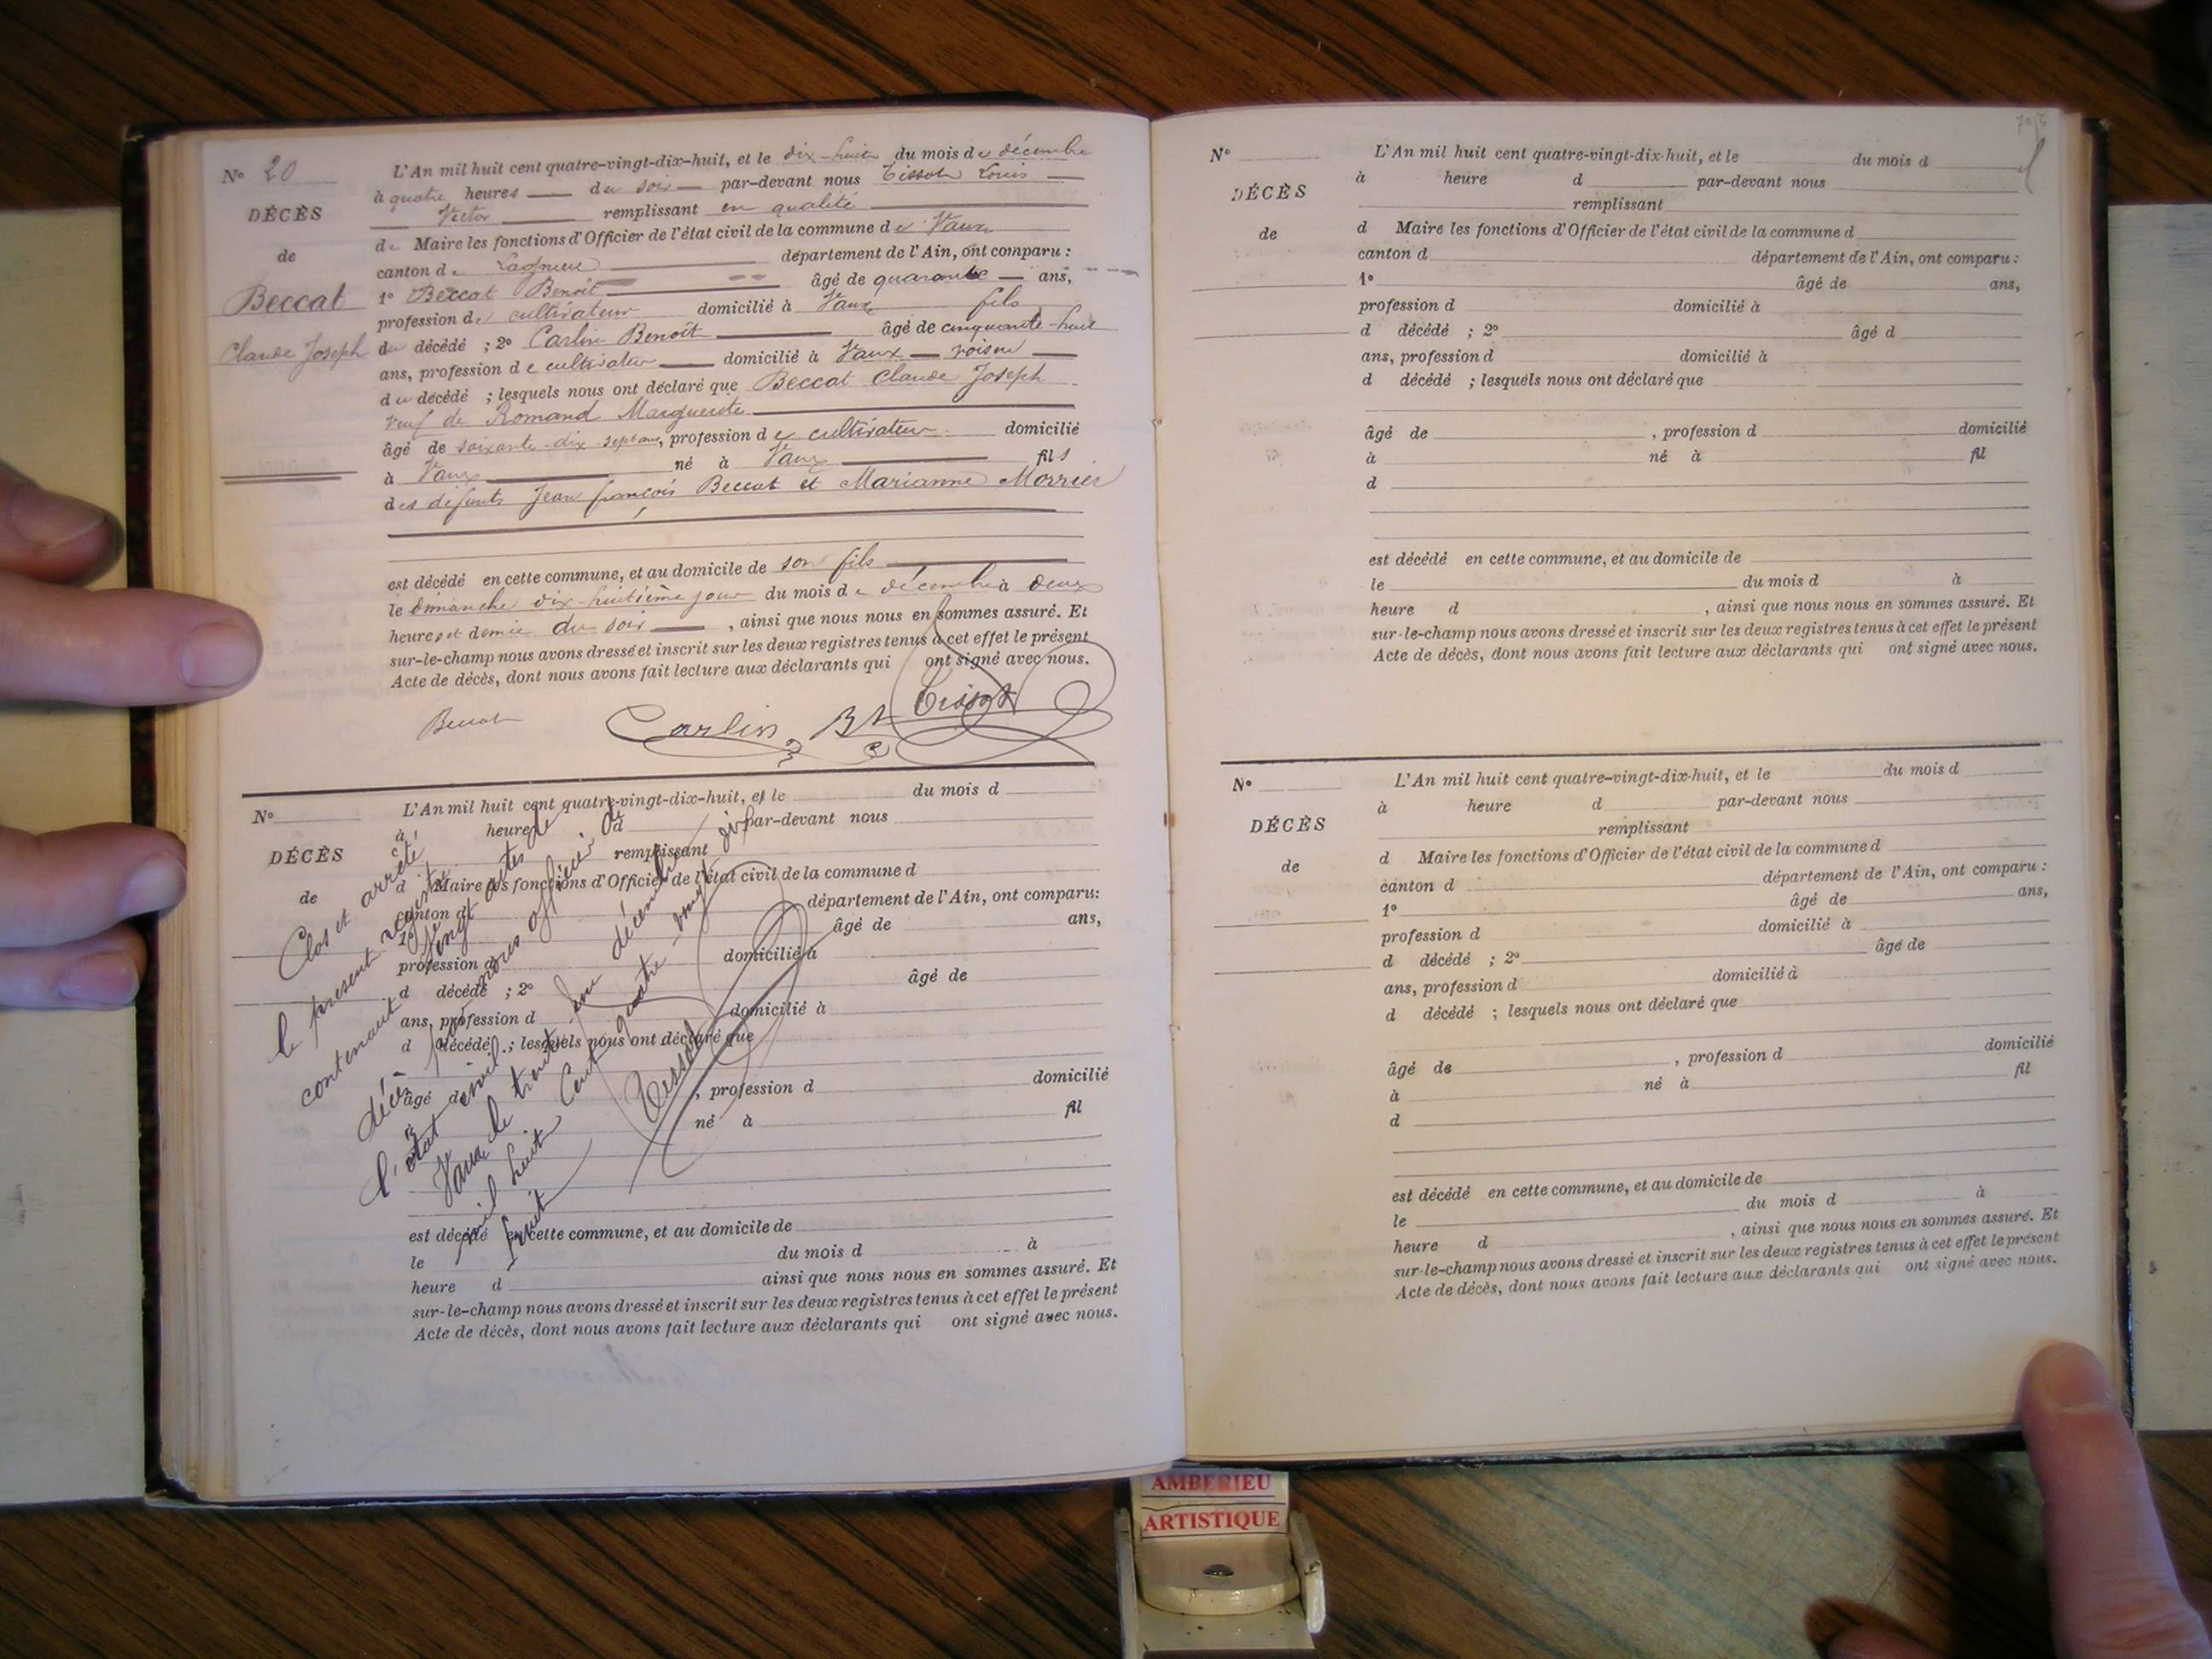 N° 20
DÉCÈS
de
Beccat
Claude Joseph
L'An mil huit cent quatre-vingt-dix-huit, et le dix-huit du mois de décembre
à quatre heures du soir par-devant nous Tissot Louis
Victor remplissant en qualité
de Maire les fonctions d'Officier de l'état civil de la commune de Vaux
canton de Lagnieu département de l'Ain, ont comparu :
1° Beccat Benoît âgé de quarante ans,
profession de cultivateur domicilié à Vaux fils
du décédé ; 2° Carlin Benoît âgé de cinquante-huit
ans, profession de cultivateur domicilié à Vaux voisin
du décédé ; lesquels nous ont déclaré que Beccat Claude Joseph
veuf de Romand Marguerite
âgé de soixante-dix-sept ans, profession de cultivateur domicilié
à Vaux né à Vaux fils
des défunts Jean françois Beccat et Marianne Morrier
est décédé en cette commune, et au domicile de son fils
le dimanche dix-huitième jour du mois de décembre à deux
heures et demie du soir, ainsi que nous nous en sommes assuré. Et
sur-le-champ nous avons dressé et inscrit sur les deux registres tenus à cet effet le présent
Acte de décès, dont nous avons fait lecture aux déclarants qui ont signé avec nous.
Beccat Carlin Bt Tissot
N°
DÉCÈS
de
L'An mil huit cent quatre-vingt-dix-huit, et le du mois d
à heure d par-devant nous
remplissant
d Maire les fonctions d'Officier de l'état civil de la commune d
canton d département de l'Ain, ont comparu:
1° âgé de ans,
profession d domicilié à
d décédé ; 2° âgé de
ans, profession d domicilié à
d décédé ; lesquels nous ont déclaré que
âgé de , profession d domicilié
à né à fil
d
est décédé en cette commune, et au domicile de
le du mois d à
heure d ainsi que nous nous en sommes assuré. Et
sur-le-champ nous avons dressé et inscrit sur les deux registres tenus à cet effet le présent
Acte de décès, dont nous avons fait lecture aux déclarants qui ont signé avec nous.
Clos et arrêté
le présent registre
contenant vingt actes de
décès par nous officier de
l'état civil
Vaux le trente un décembre
mil huit cent quatre-vingt dix
huit
Tissot
N°
DÉCÈS
de
L'An mil huit cent quatre-vingt-dix-huit, et le du mois d
à heure d par-devant nous
remplissant
d Maire les fonctions d'Officier de l'état civil de la commune d
canton d département de l'Ain, ont comparu :
1° âgé de ans,
profession d domicilié à
d décédé ; 2° âgé d
ans, profession d domicilié à
d décédé ; lesquels nous ont déclaré que
âgé de , profession d domicilié
à né à fil
d
est décédé en cette commune, et au domicile de
le du mois d à
heure d , ainsi que nous nous en sommes assuré. Et
sur-le-champ nous avons dressé et inscrit sur les deux registres tenus à cet effet le présent
Acte de décès, dont nous avons fait lecture aux déclarants qui ont signé avec nous.
N°
DÉCÈS
de
L'An mil huit cent quatre-vingt-dix-huit, et le du mois d
à heure d par-devant nous
remplissant
d Maire les fonctions d'Officier de l'état civil de la commune d
canton d département de l'Ain, ont comparu :
1° âgé de ans,
profession d domicilié à
d décédé ; 2° âgé de
ans, profession d domicilié à
d décédé ; lesquels nous ont déclaré que
âgé de , profession d domicilié
à né à fil
d
est décédé en cette commune, et au domicile de
le du mois d à
heure d , ainsi que nous nous en sommes assuré. Et
sur-le-champ nous avons dressé et inscrit sur les deux registres tenus à cet effet le présent
Acte de décès, dont nous avons fait lecture aux déclarants qui ont signé avec nous.
AMBERIEU
ARTISTIQUE